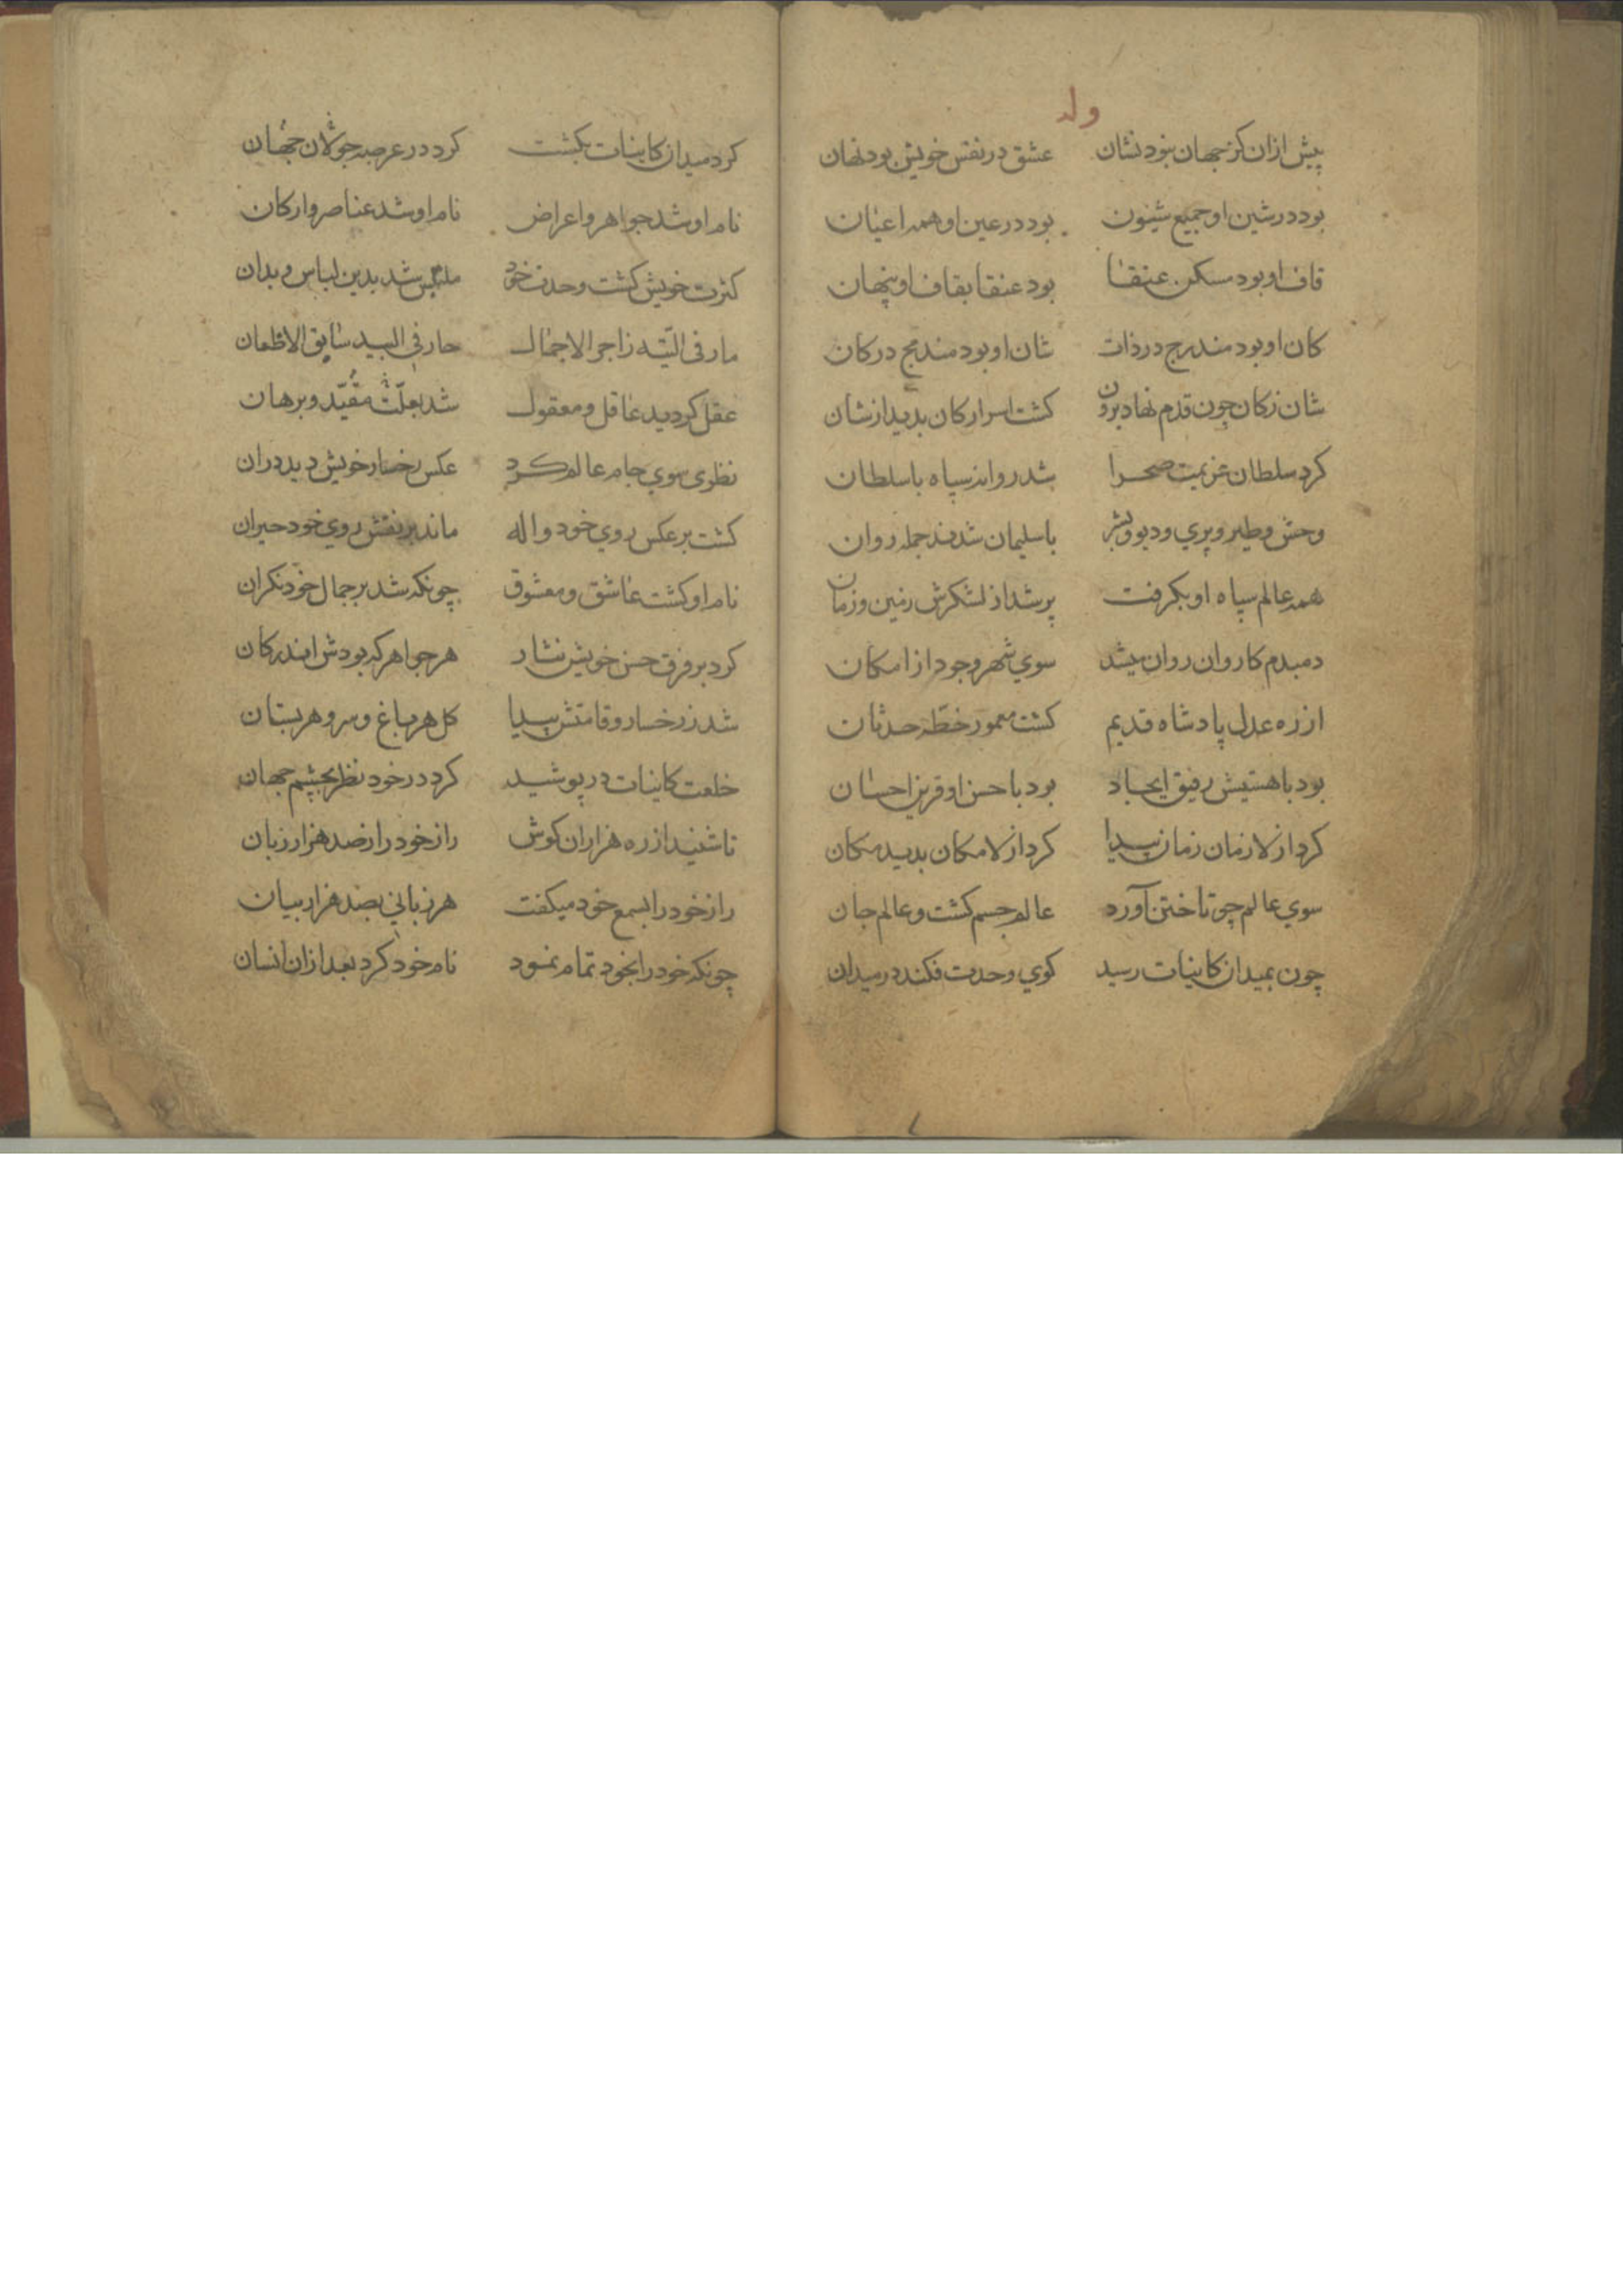 وله
پیش ازان کز جهان نبود نشان عشق در نفس خویش بود نهان
بود در شین او جمیع شیون بود در عین او همه اعیان
قاف او بود مسکن عنقا بود عنقا بقاف او پنهان
کان او بود مندرج در ذات شان او بود مندمج در کان
شان ز کان چون قدم نهاد برون کشت اسرار کان بدید از شان
کرد سلطان عزیمت صحرا شد روانه سپاه با سلطان
وحش و طیر و پری و دیو و بشر با سلیمان شدند جمله روان
همه عالم سپاه او بکرفت پر شد از لشکرش زمین و زمان
دمبدم کاروان روان میشد سوی شهر وجود از امکان
از ره عدل پادشاه قدیم کشت معمور خطّه حدثان
بود با هستیش رفیق ایجاد بود با حسن او قرین احسان
کرد از لا زمان زمان پیدا کرد از لا مکان بدید مکان
سوی عالم چو تاختن آورد عالم جسم کشت و عالم جان
چون بمیدان کاینات رسید کوی وحدت فکند در میدان
کرد میدان کاینات بکشت کرد در عرصه جولان جهان
نام او شد جواهر و اعراض نام او شد عناصر و ارکان
کثرت خویش کشت وحدت خود ملتبس شد بدین لباس و بدان
مار فی التیّه زاجر الاجمال حار فی البید سایق الاظعان
عقل کردید عاقل و معقول شد بعلّت مقیّد و برهان
نظری سوی جام عالم کرد عکس رخسار خویش دید دران
کشت بر عکس روی خود واله ماند بر نقش روی خود حیران
نام او کشت عاشق و معشوق چونکه شد بر جمال خود نکران
کرد بر فرق حسن خویش نثار هر جواهر که بودش اندر کان
شد ز رخسار و قامتش پیدا کل هر باغ و سرو هر بستان
خلعت کاینات در پوشید کرد در خود نظر بچشم جهان
تا شنید از ره هزاران کوش راز خود را ز صد هزار زبان
راز خود را بسمع خود میکفت هر زبانی بصد هزار بیان
چونکه خود را بخود تمام نمود نام خود کرد بعد ازان انسان